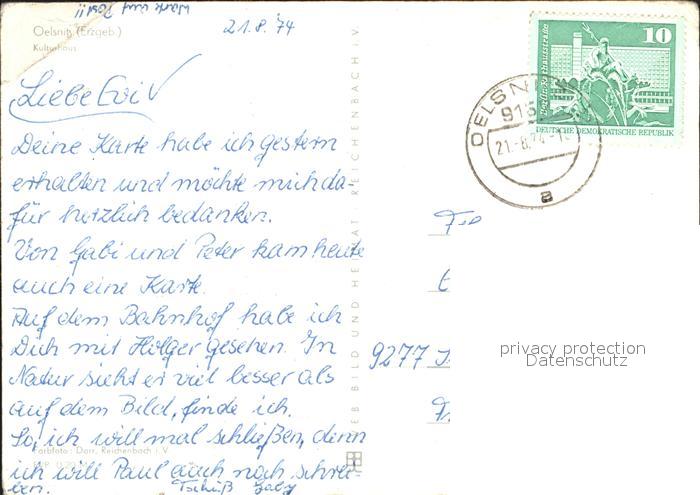 Oelsnitz (Erzgeb.)
Kulturhaus
21.8.'74
Liebe Evi
Deine Karte habe ich gestern
erhalten und möchte mich da-
für herzlich bedanken.
Von Gabi und Peter kam heute
auch eine Karte.
Auf dem Bahnhof habe ich
Dich mit Holger gesehen. In
Natur sieht er viel besser als
auf dem Bild, finde ich.
So, ich will mal schließen, denn
ich will Paul auch noch schrei-
ben. Tschüß Gaby
Farbfoto: Darr, Reichenbach i. V.
VEB BILD UND HEIMAT REICHENBACH i. V.
10
DEUTSCHE DEMOKRATISCHE REPUBLIK
OELSN
21.-8.74
a
9277
privacy protection
Datenschutz